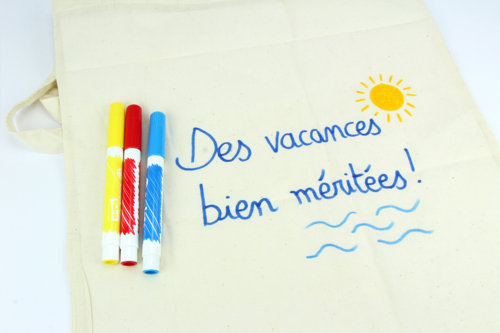 Des vacances
bien méritées!